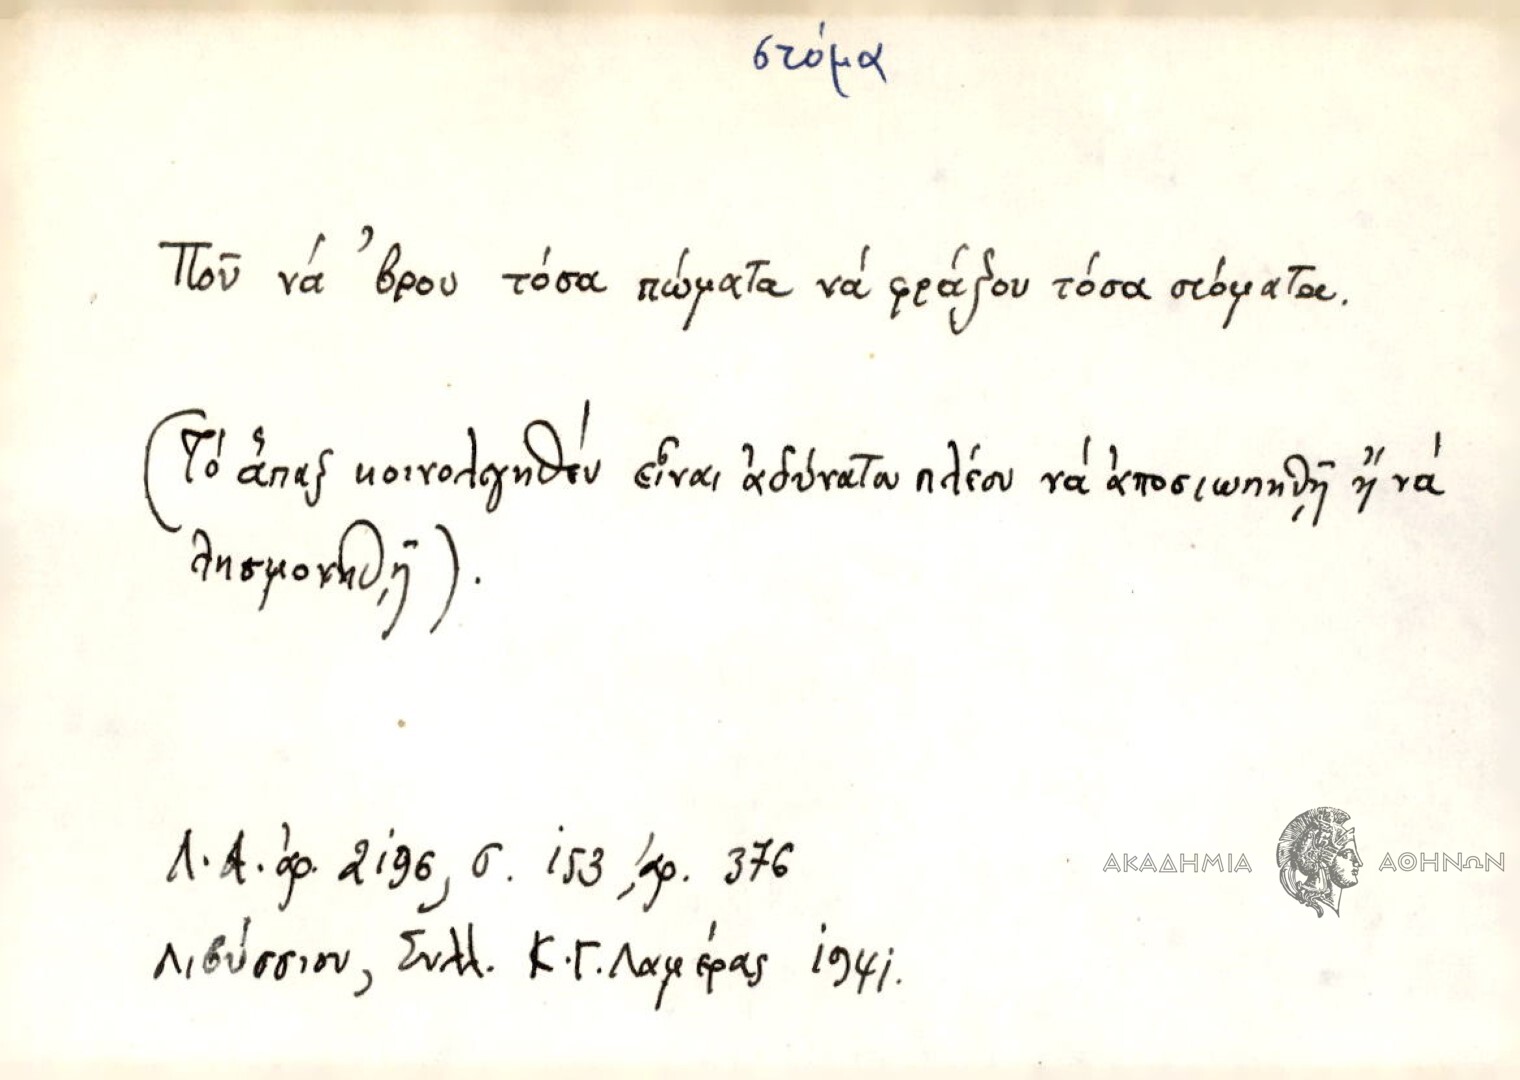 στόμα
Ποῦ νά ᾿βρου τόσα πώματα νά φράξου τόσα στόματα.
(Τό ἅπαξ κοινολογηθέν εἶναι ἀδύνατον πλέον νά ἀποσιωπηθῇ ἤ νά
λησμονηθῇ).
Λ.Α. ἀρ. 2196, σ. 153, ἀρ. 376
Λιβύσσιον, Συλλ. Κ.Γ. Λαμέρας 1941.
ΑΚΑΔΗΜΙΑ ΑΘΗΝΩΝ